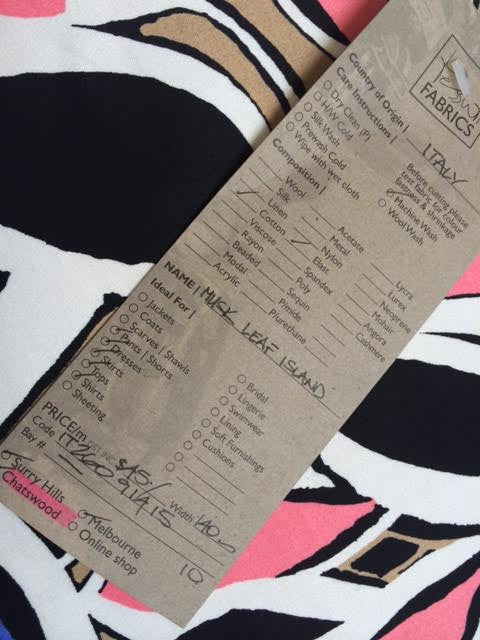 Tessuti
FABRICS
Country of Origin | ITALY
Care Instructions |
Before cutting please
test fabric for colour
fastness & shrinkage
Dry Clean (P)
H/W Cold
Silk Wash
Prewash Cold
Wipe with wet cloth
Machine Wash
Wool Wash
Composition |
Wool
Silk
Linen
Cotton
Viscose
Rayon
Beaded
Modal
Acrylic
Acetate
Metal
Nylon
Elast
Spandex
Poly
Sequin
P/mide
P/urethane
Lycra
Lurex
Neoprene
Mohair
Angora
Cashmere
NAME | MUSK LEAF ISLAND
Ideal For |
Jackets
Coats
Scarves / Shawls
Pants / Shorts
Dresses
Skirts
Tops
Shirts
Sheeting
Bridal
Lingerie
Swimwear
Lining
Soft Furnishings
Cushions
PRICE/m $45/
Code IT26091415
Width 140
Bay #
Surry Hills
Chatswood
Melbourne
Online shop
10